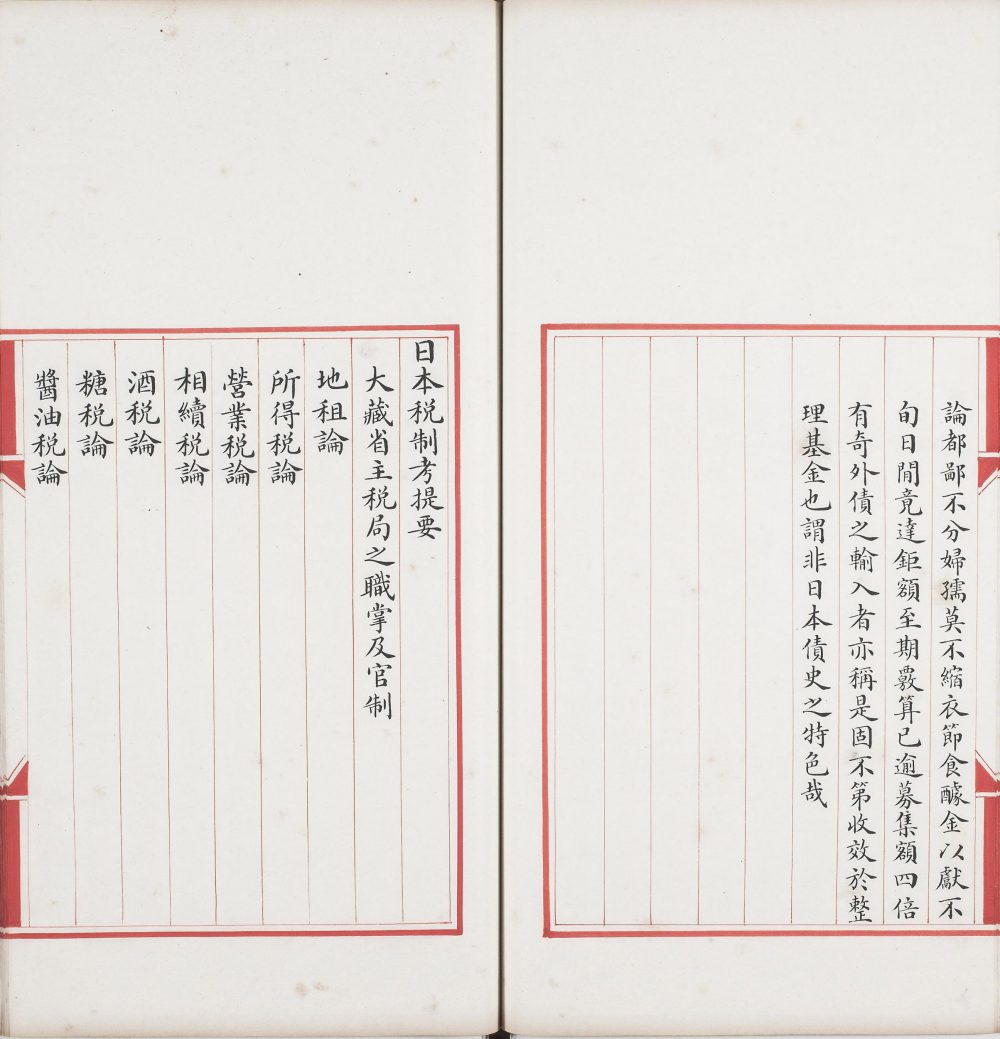 論都鄙不分婦孺莫不縮衣節食醵金以獻不
旬日閒竟達鉅額至期覈算已逾募集額四倍
有奇外債之輸入者亦稱是固不第收效於整
理基金也謂非日本債史之特色哉
日本稅制考提要
大藏省主稅局之職掌及官制
地租論
所得稅論
營業稅論
相續稅論
酒稅論
糖稅論
醬油稅論